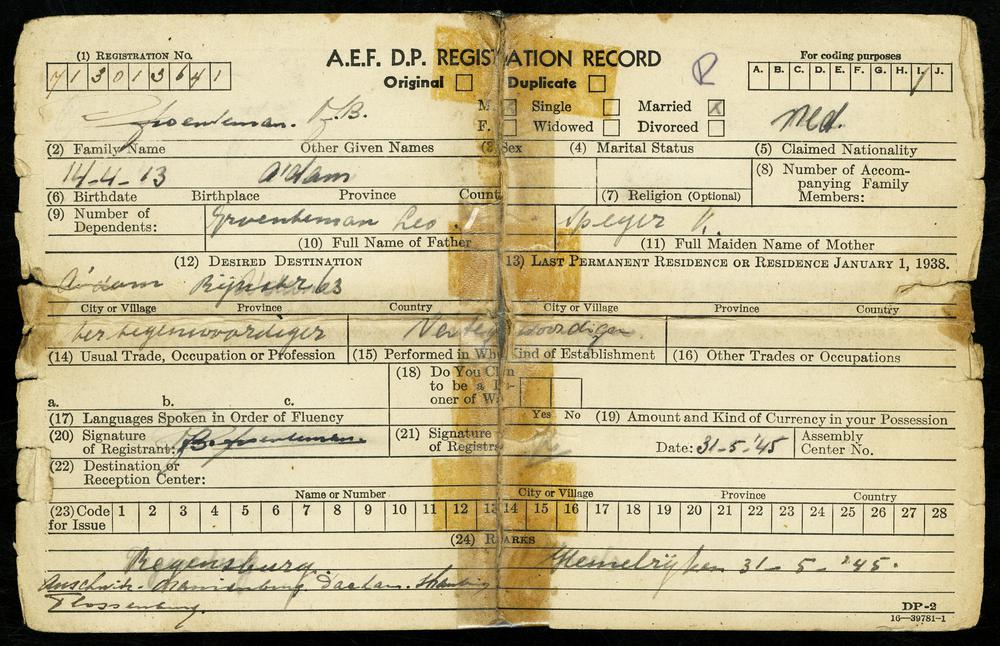 (1) REGISTRATION No.
A.E.F. D.P. REGISTRATION RECORD
For coding purposes
7 1 3 0 1 3 6 4 1
Original Duplicate
R
A. B. C. D. E. F. G. H. I. J.
M. Single Married
Groenteman. B.
Ned.
F. Widowed Divorced
(2) Family Name Other Given Names (3) Sex (4) Marital Status (5) Claimed Nationality
14-4-13 A'dam
(8) Number of Accompanying Family Members:
(6) Birthdate Birthplace Province Count
(7) Religion (Optional)
(9) Number of Dependents:
Groenteman Leo
Speyer
(10) Full Name of Father (11) Full Maiden Name of Mother
(12) DESIRED DESTINATION 13) LAST PERMANENT RESIDENCE OR RESIDENCE JANUARY 1, 1938.
A'dam Rijnstr 63
City or Village Province Country City or Village Province Country
vertegenwoordiger
(14) Usual Trade, Occupation or Profession (15) Performed in Wh Kind of Establishment (16) Other Trades or Occupations
(18) Do You Cl
to be a
oner of W
a. b. c.
(17) Languages Spoken in Order of Fluency
Yes No (19) Amount and Kind of Currency in your Possession
(20) Signature of Registrant: B Groenteman.
(21) Signature of Registr
Date: 31-5-'45
Assembly Center No.
(22) Destination or Reception Center:
Name or Number City or Village Province Country
(23) Code for Issue 1 2 3 4 5 6 7 8 9 10 11 12 13 14 15 16 17 18 19 20 21 22 23 24 25 26 27 28
(24) R ARKS
Regensburg. 31-5-'45.
Auschwitz. Oranienburg. Dachau.
Flossenburg.
DP-2
16—39781-1